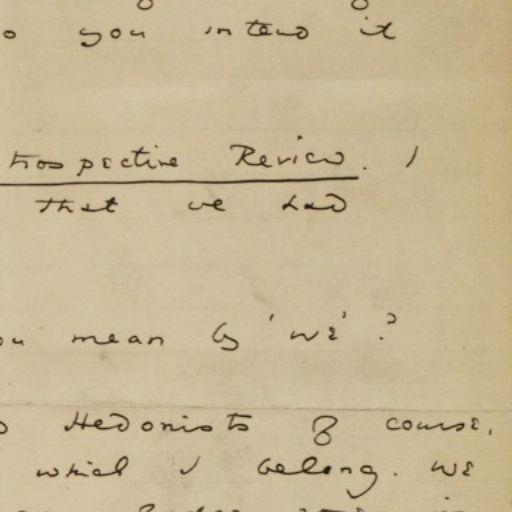 o you intend it
trospective Review. I
that we had
ou mean by 'we'?
Hedonists of course,
which I belong. We